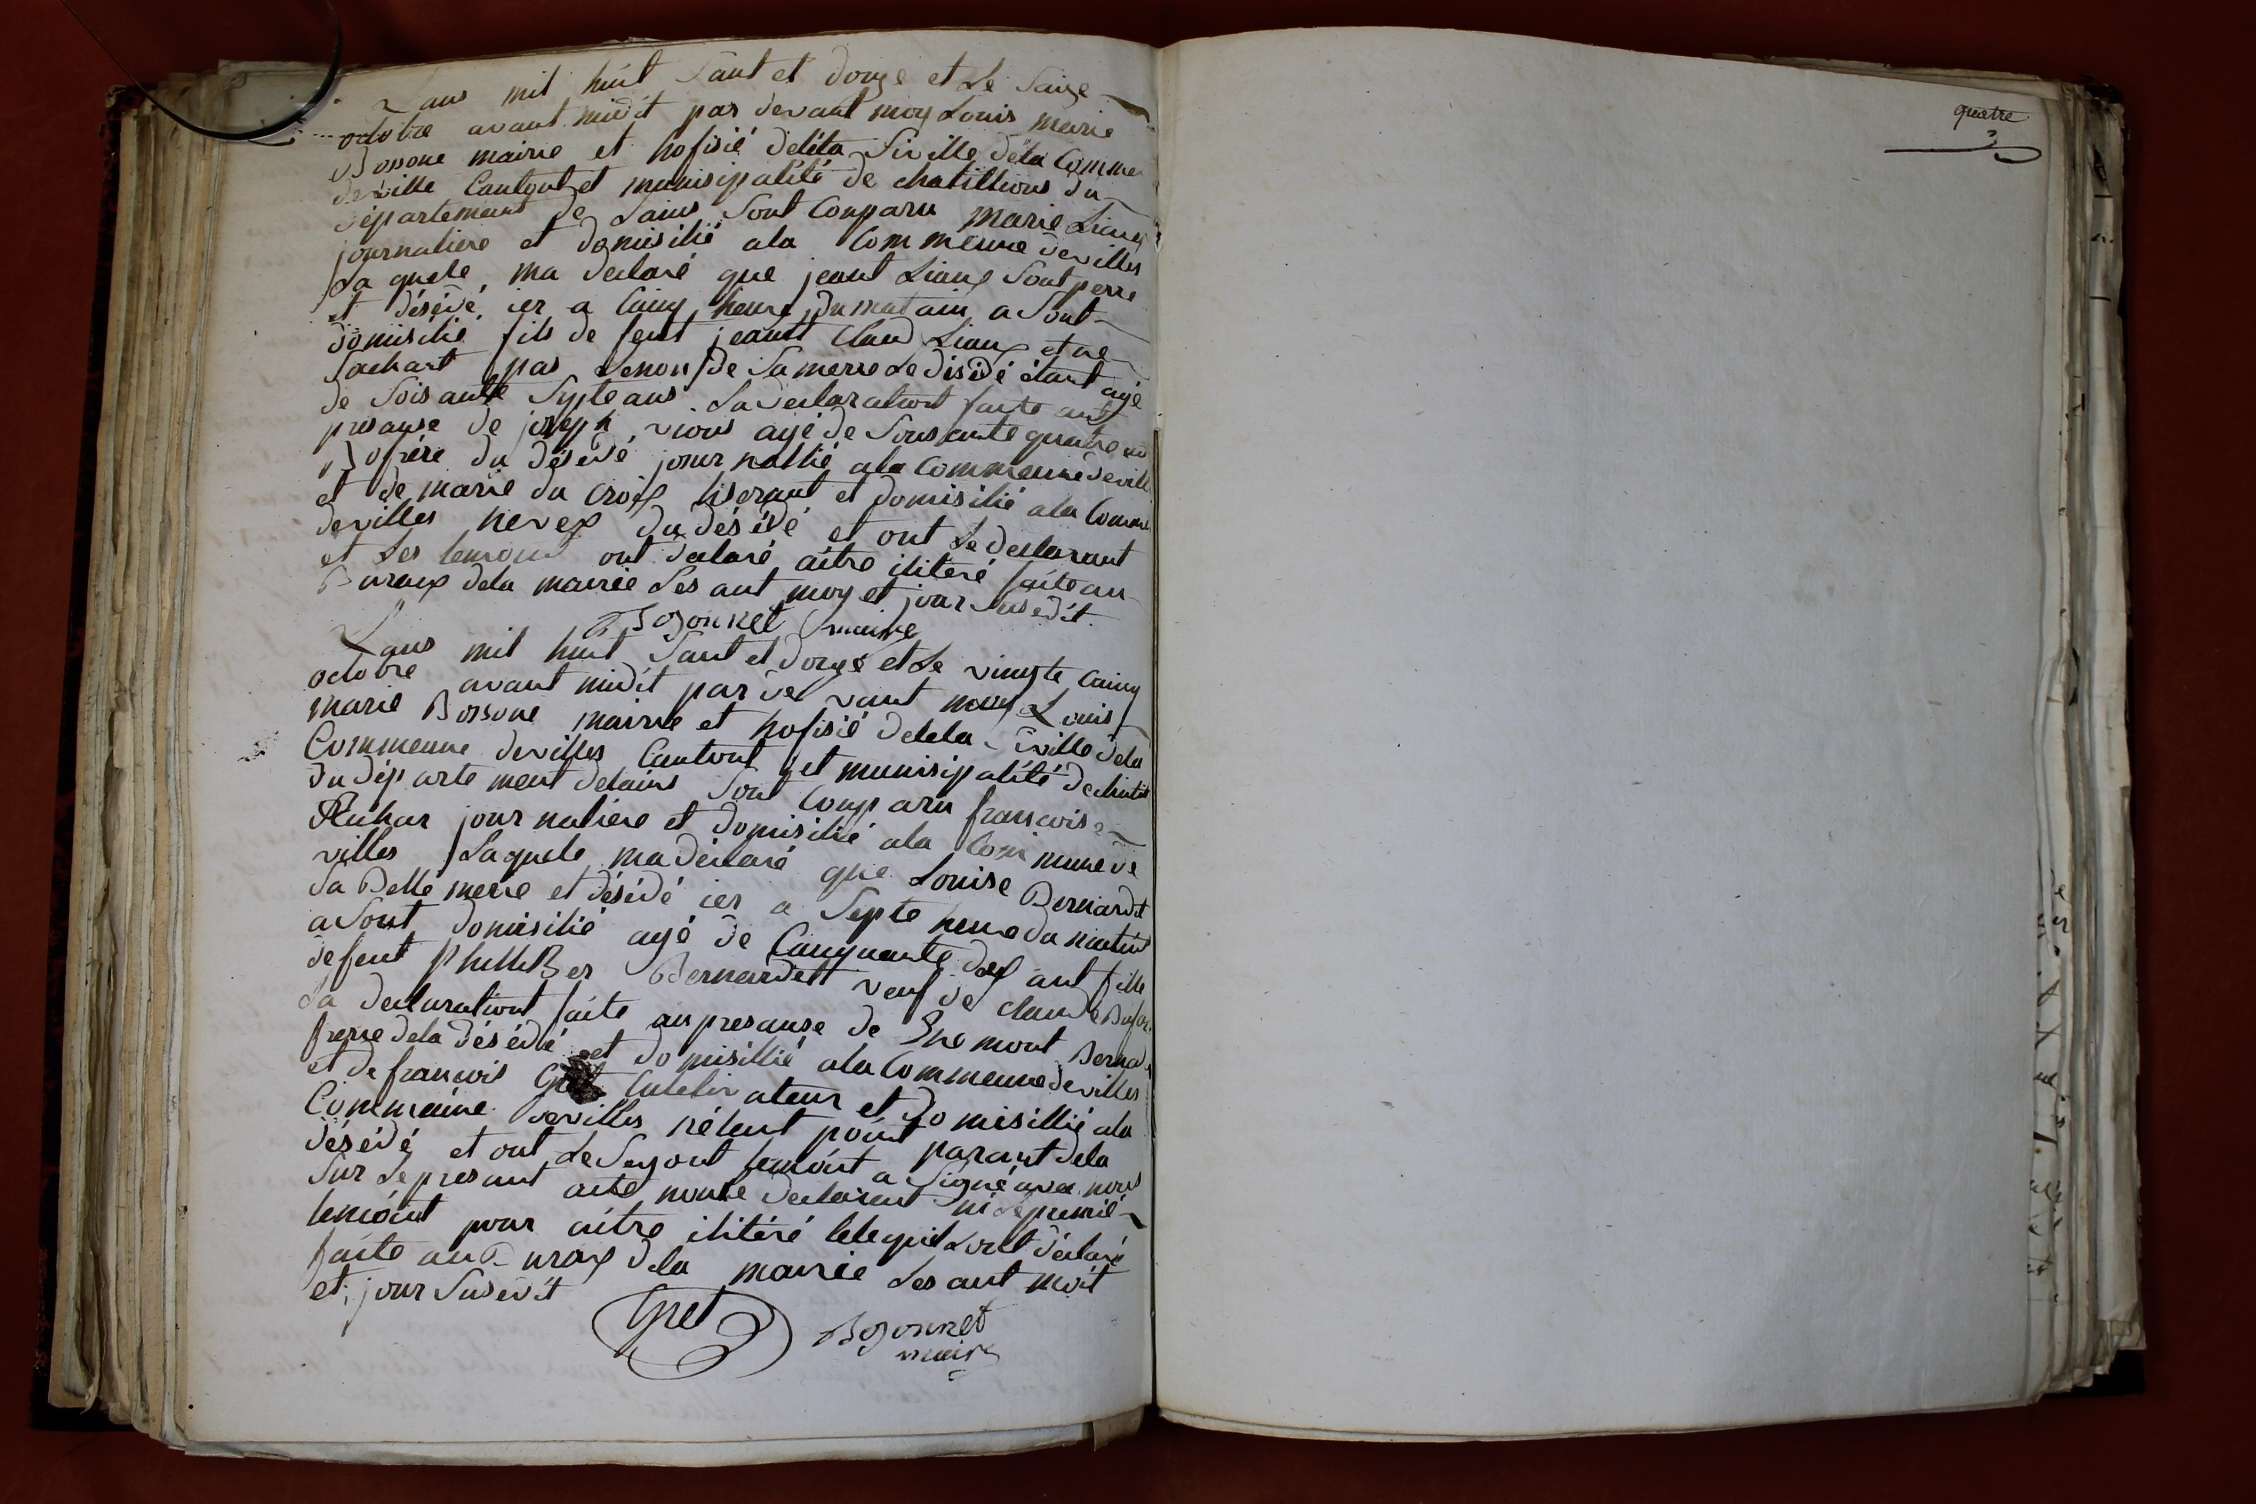 Lans mil huit Sant et douze et Le Saize
octobre avant midit par devant moy Louis marie
Bosone mairie et hofisié deléta Siville dela Comme
deville Cantont et munisipalité de chatillions du
département de Lains Sont Comparu marie Liaux
journaliere et domisilié ala Commeune devilles
La quele ma declaré que jeant Liaux Sont perre
et désédé ier a Cainq heure du matain a Sont
domisilié fils de feut jeant Claud Liaux et ne
Sachant pas Lenon de Sa merre Le désédé étant agé
de Soisante Sypte ans La declarationt faite ant
presanse de joseph agé de Soisante quatre
Bofrére du désédé journallié ala Commeune deville
et de marie du Croix tiserant et domisilié ala Comme
devilles nevex du désédé et ont Le declarant
et Les temoint ont declaré aitre ilitéré faite au
Buraux dela mairie Les ant moy et jour Susedit
Bozonnet maire
Lans mil huit Sant et douze et Le vingte Cainq
octobre avant midit par de vant moy Louis
marie Bossone mairie et hofisié deleta Siville dela
Commeune devilles Cantont et munisipalité de chatill
du département delains Sont Comparu francois
journaliere et domisilié ala Commune de
villes Laquele ma declaré que Louise Bernardet
Sa Belle merre et désédé ier a Septe heure du matint
a Sont domisilié agé de Cainquante dex ant fille
defeut PhilliBer Bernardett veuf de claude
La declarationt faite an presanse de Enemont Berna
frerre dela désédé et domisillié ala Commeune devilles
et de francois Gret Culetivateur et domisillié ala
Commeune devilles nétent point parant dela
désédé et ont Le Segont temoint a Signé avec nous
Sur Le presant acte nonte declarent ni Le premié
temoint pour aitre ilitéré Cele quil Lont déclaré
faite au Buraux dela mairie Les ant moit
et jour Susedit
Gret
Bozonnet
maire
quatre